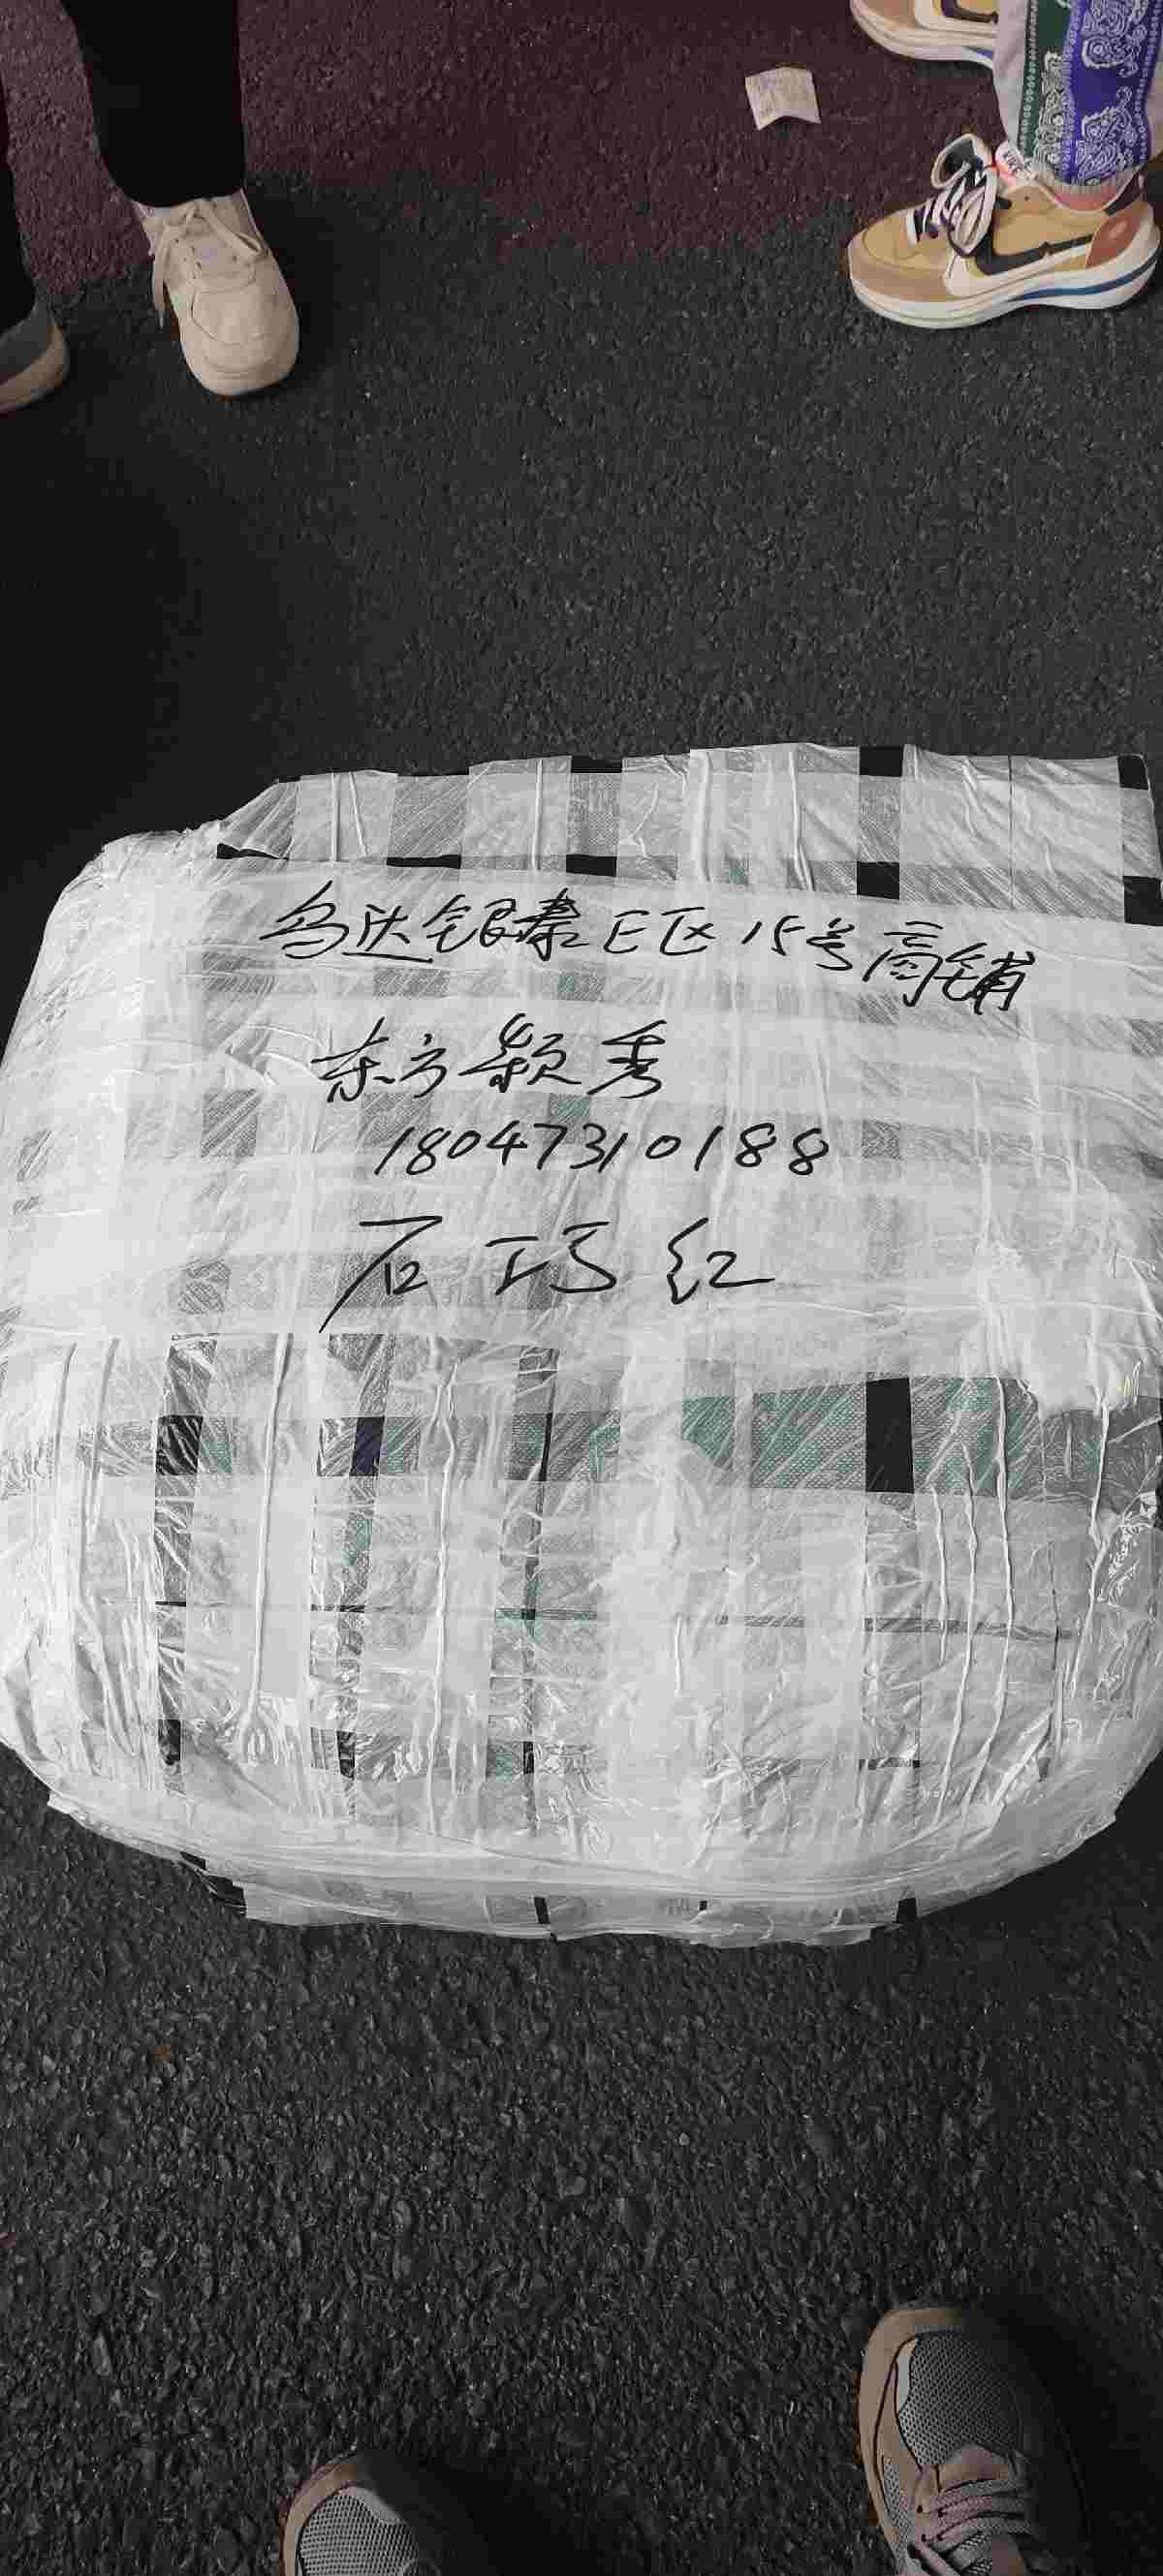 乌达银泰E区15号商铺
东方颖秀
18047310188
石巧红